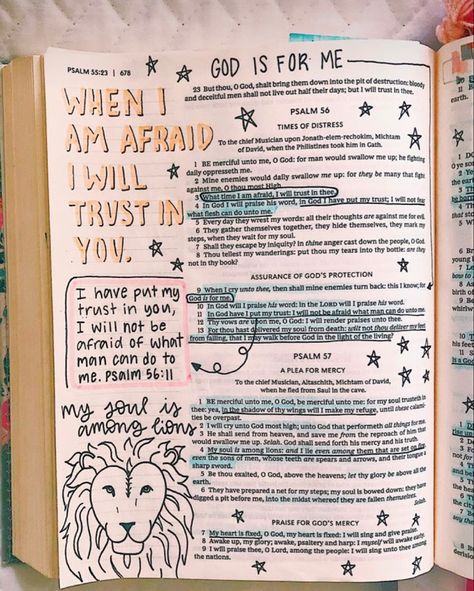 PSALM 55:23 | 678
GOD IS FOR ME
WHEN I
AM AFRAID
I WILL
TRUST IN
YOU.
I have put my
trust in you,
I will not be
afraid of what
man can do to
me. Psalm 56:11
my soul is
among lions
23 But thou, O God, shalt bring them down into the pit of destruction: bloody
and deceitful men shall not live out half their days; but I will trust in thee.
PSALM 56
TIMES OF DISTRESS
To the chief Musician upon Jonath-elem-rechokim, Michtam
of David, when the Philistines took him in Gath.
1 BE merciful unto me, O God: for man would swallow me up; he fighting
daily oppresseth me.
2 Mine enemies would daily swallow me up: for they be many that fight
against me, O thou most High.
3 What time I am afraid, I will trust in thee.
4 In God I will praise his word, in God I have put my trust; I will not fear
what flesh can do unto me.
5 Every day they wrest my words: all their thoughts are against me for evil.
6 They gather themselves together, they hide themselves, they mark my
steps, when they wait for my soul.
7 Shall they escape by iniquity? in thine anger cast down the people, O God.
8 Thou tellest my wanderings: put thou my tears into thy bottle: are they
not in thy book?
ASSURANCE OF GOD'S PROTECTION
9 When I cry unto thee, then shall mine enemies turn back: this I know; for
God is for me.
10 In God will I praise his word: in the LORD will I praise his word.
11 In God have I put my trust: I will not be afraid what man can do unto me.
12 Thy vows are upon me, O God: I will render praises unto thee.
13 For thou hast delivered my soul from death: wilt not thou deliver my feet
from falling, that I may walk before God in the light of the living?
PSALM 57
A PLEA FOR MERCY
To the chief Musician, Altaschith, Michtam of David,
when he fled from Saul in the cave.
1 BE merciful unto me, O God, be merciful unto me: for my soul trusteth in
thee: yea, in the shadow of thy wings will I make my refuge, until these calami-
ties be overpast.
2 I will cry unto God most high; unto God that performeth all things for me.
3 He shall send from heaven, and save me from the reproach of him that
would swallow me up. Selah. God shall send forth his mercy and his truth.
4 My soul is among lions: and I lie even among them that are set on fire,
even the sons of men, whose teeth are spears and arrows, and their tongue a
sharp sword.
5 Be thou exalted, O God, above the heavens; let thy glory be above all the
earth.
6 They have prepared a net for my steps; my soul is bowed down: they have
digged a pit before me, into the midst whereof they are fallen themselves.
Selah.
PRAISE FOR GOD'S MERCY
7 My heart is fixed, O God, my heart is fixed: I will sing and give praise.
8 Awake up, my glory; awake, psaltery and harp: I myself will awake early.
9 I will praise thee, O Lord, among the people: I will sing unto thee among
the nations.